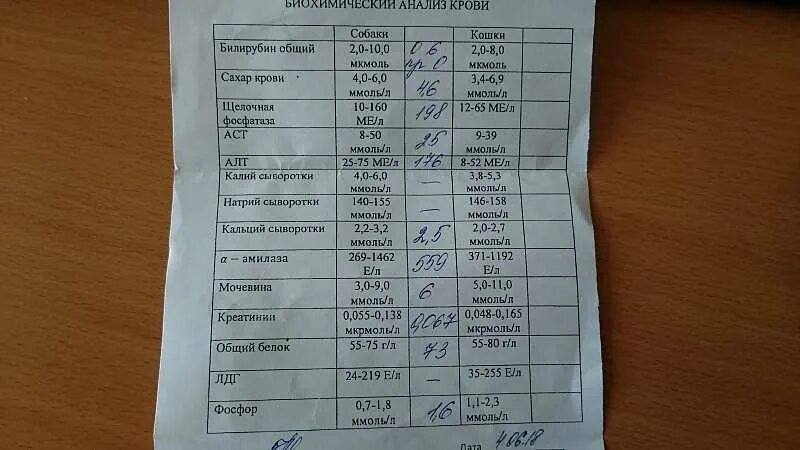 БИОХИМИЧЕСКИЙ АНАЛИЗ КРОВИ
Собаки Кошки
Билирубин общий 2,0-10,0 мкмоль 0 6 пр 0 2,0-8,0 мкмоль
Сахар крови 4,0-6,0 ммоль/л 4,6 3,4-6,9 ммоль/л
Щелочная фосфатаза 10-160 МЕ/л 198 12-65 МЕ/л
АСТ 8-50 ммоль/л 25 9-39 ммоль/л
АЛТ 25-75 МЕ/л 176 8-52 МЕ/л
Калий сыворотки 4,0-6,0 ммоль/л — 3,8-5,3 ммоль/л
Натрий сыворотки 140-155 ммоль/л — 146-158 ммоль/л
Кальций сыворотки 2,2-3,2 ммоль/л 2,5 2,0-2,7 ммоль/л
α – амилаза 269-1462 Е/л 559 371-1192 Е/л
Мочевина 3,0-9,0 ммоль/л 6 5,0-11,0 ммоль/л
Креатинин 0,055-0,138 мкрмоль/л 0,067 0,048-0,165 мкрмоль/л
Общий белок 55-75 г/л 73 55-80 г/л
ЛДГ 24-219 Е/л — 35-255 Е/л
Фосфор 0,7-1,8 ммоль/л 1,6 1,1-2,3 ммоль/л
Дата 4.06.18